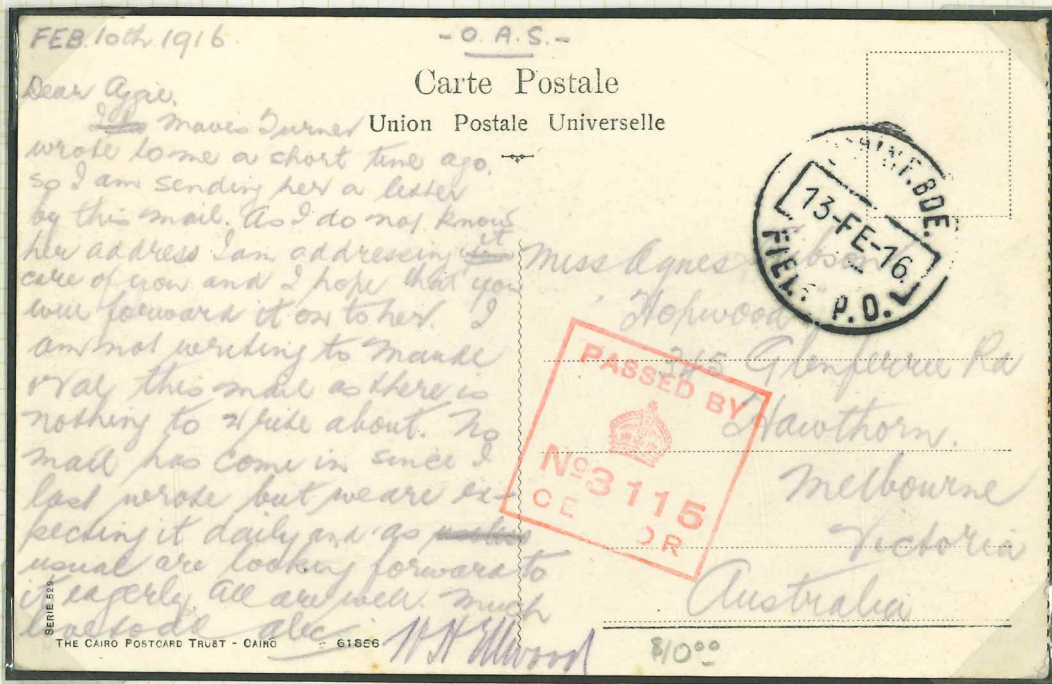 FEB. 10th 1916
- O. A. S. -
Carte Postale
Union Postale Universelle
Dear Aggie,
Mavis Turner
wrote to me a short time ago,
so I am sending her a letter
by this mail. As I do not know
her address I am addressing it
care of you and I hope that you
will forward it on to her. I
am not writing to Maude
or Val this mail as there is
nothing to write about. No
mail has come in since I
last wrote but we are ex-
pecting it daily and as
usual are looking forward to
it eagerly. All are well. Much
love to all Alec
W H Ellwood
INF. BDE.
13-FE-16
FIELD P.O.
Miss Agnes Gibson
Hopwood
345 Glenferrie Rd
Hawthorn.
Melbourne
Victoria
Australia
PASSED BY
No 3115
CE OR
SERIE 529
THE CAIRO POSTCARD TRUST - CAIRO 61856
$10.00